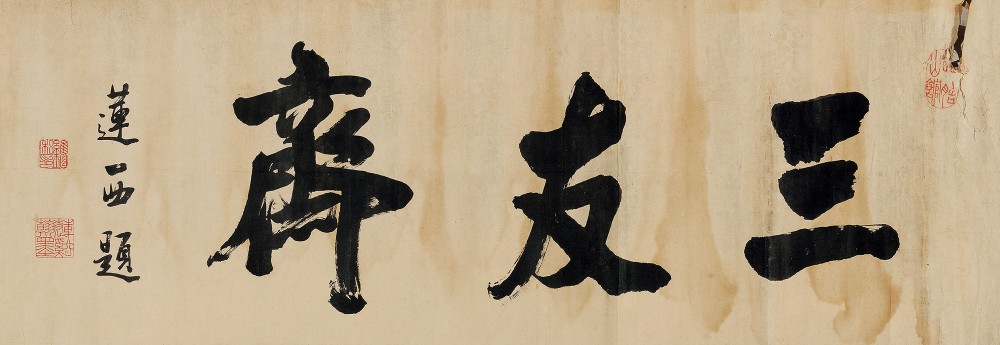 三友斎
蓮西題